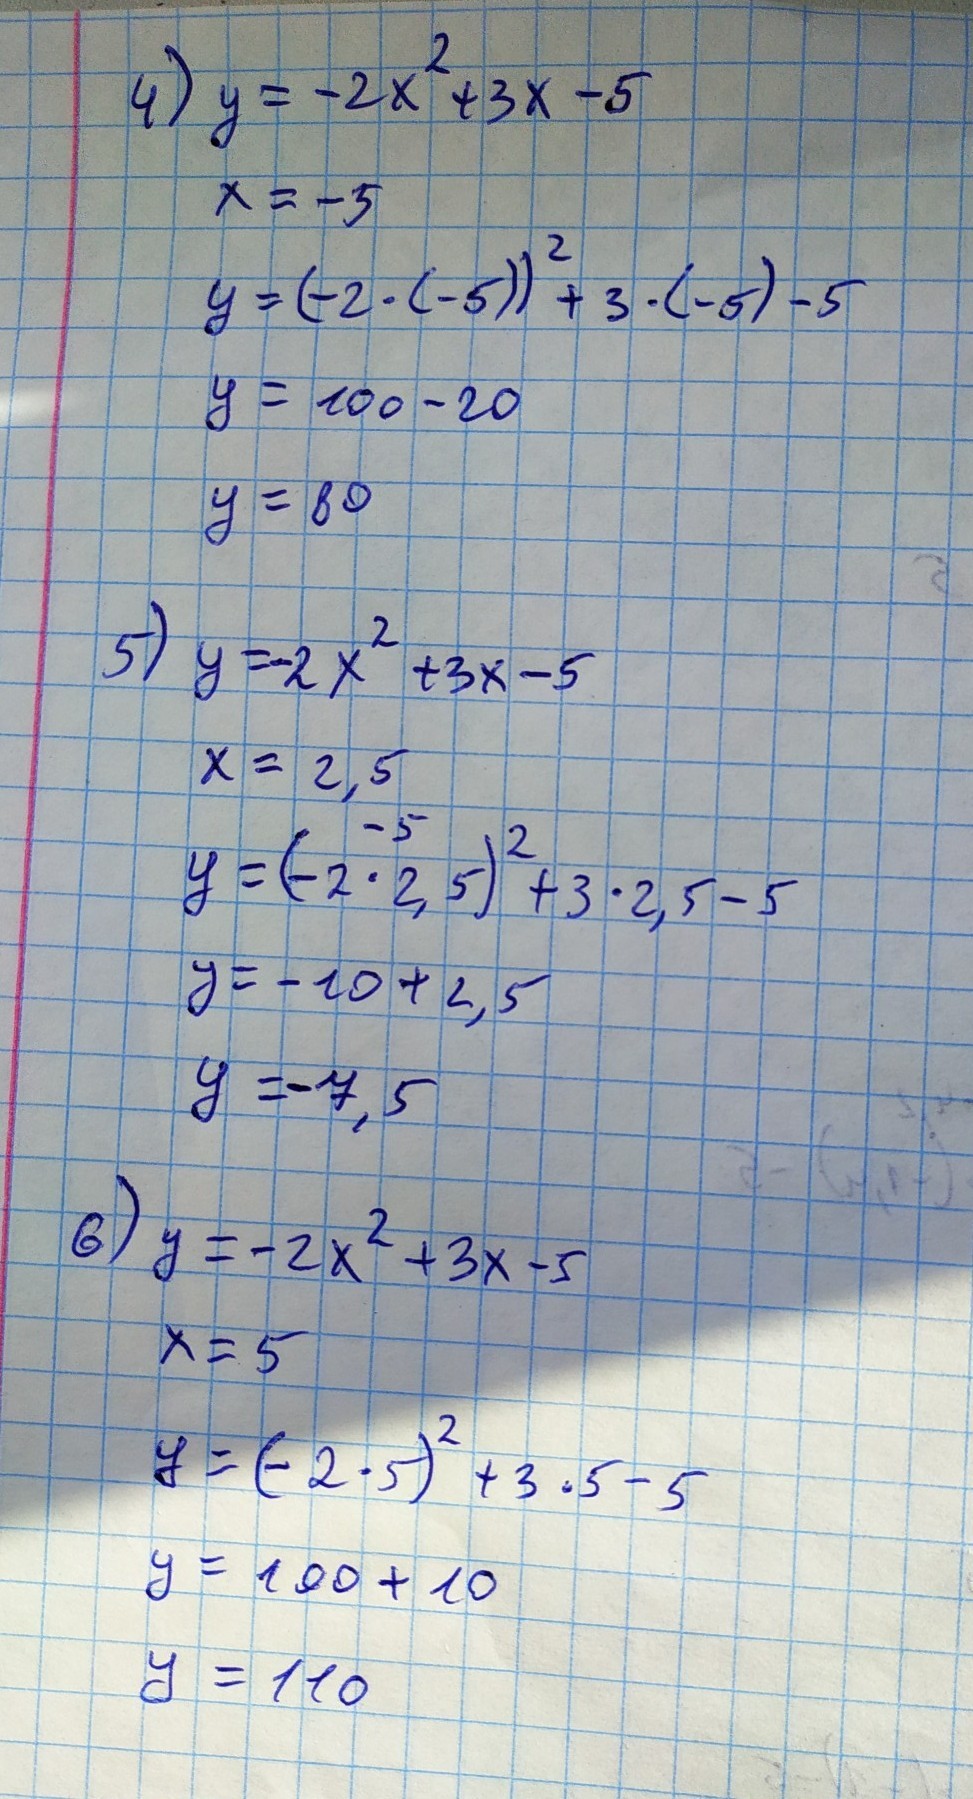 4) y = -2x² + 3x - 5
x = -5
y = (-2·(-5))² + 3·(-5) - 5
y = 100 - 20
y = 80
5) y = -2x² + 3x - 5
x = 2,5
-5
y = (-2·2,5)² + 3·2,5 - 5
y = -10 + 2,5
y = -7,5
6) y = -2x² + 3x - 5
x = 5
y = (-2·5)² + 3·5 - 5
y = 100 + 10
y = 110